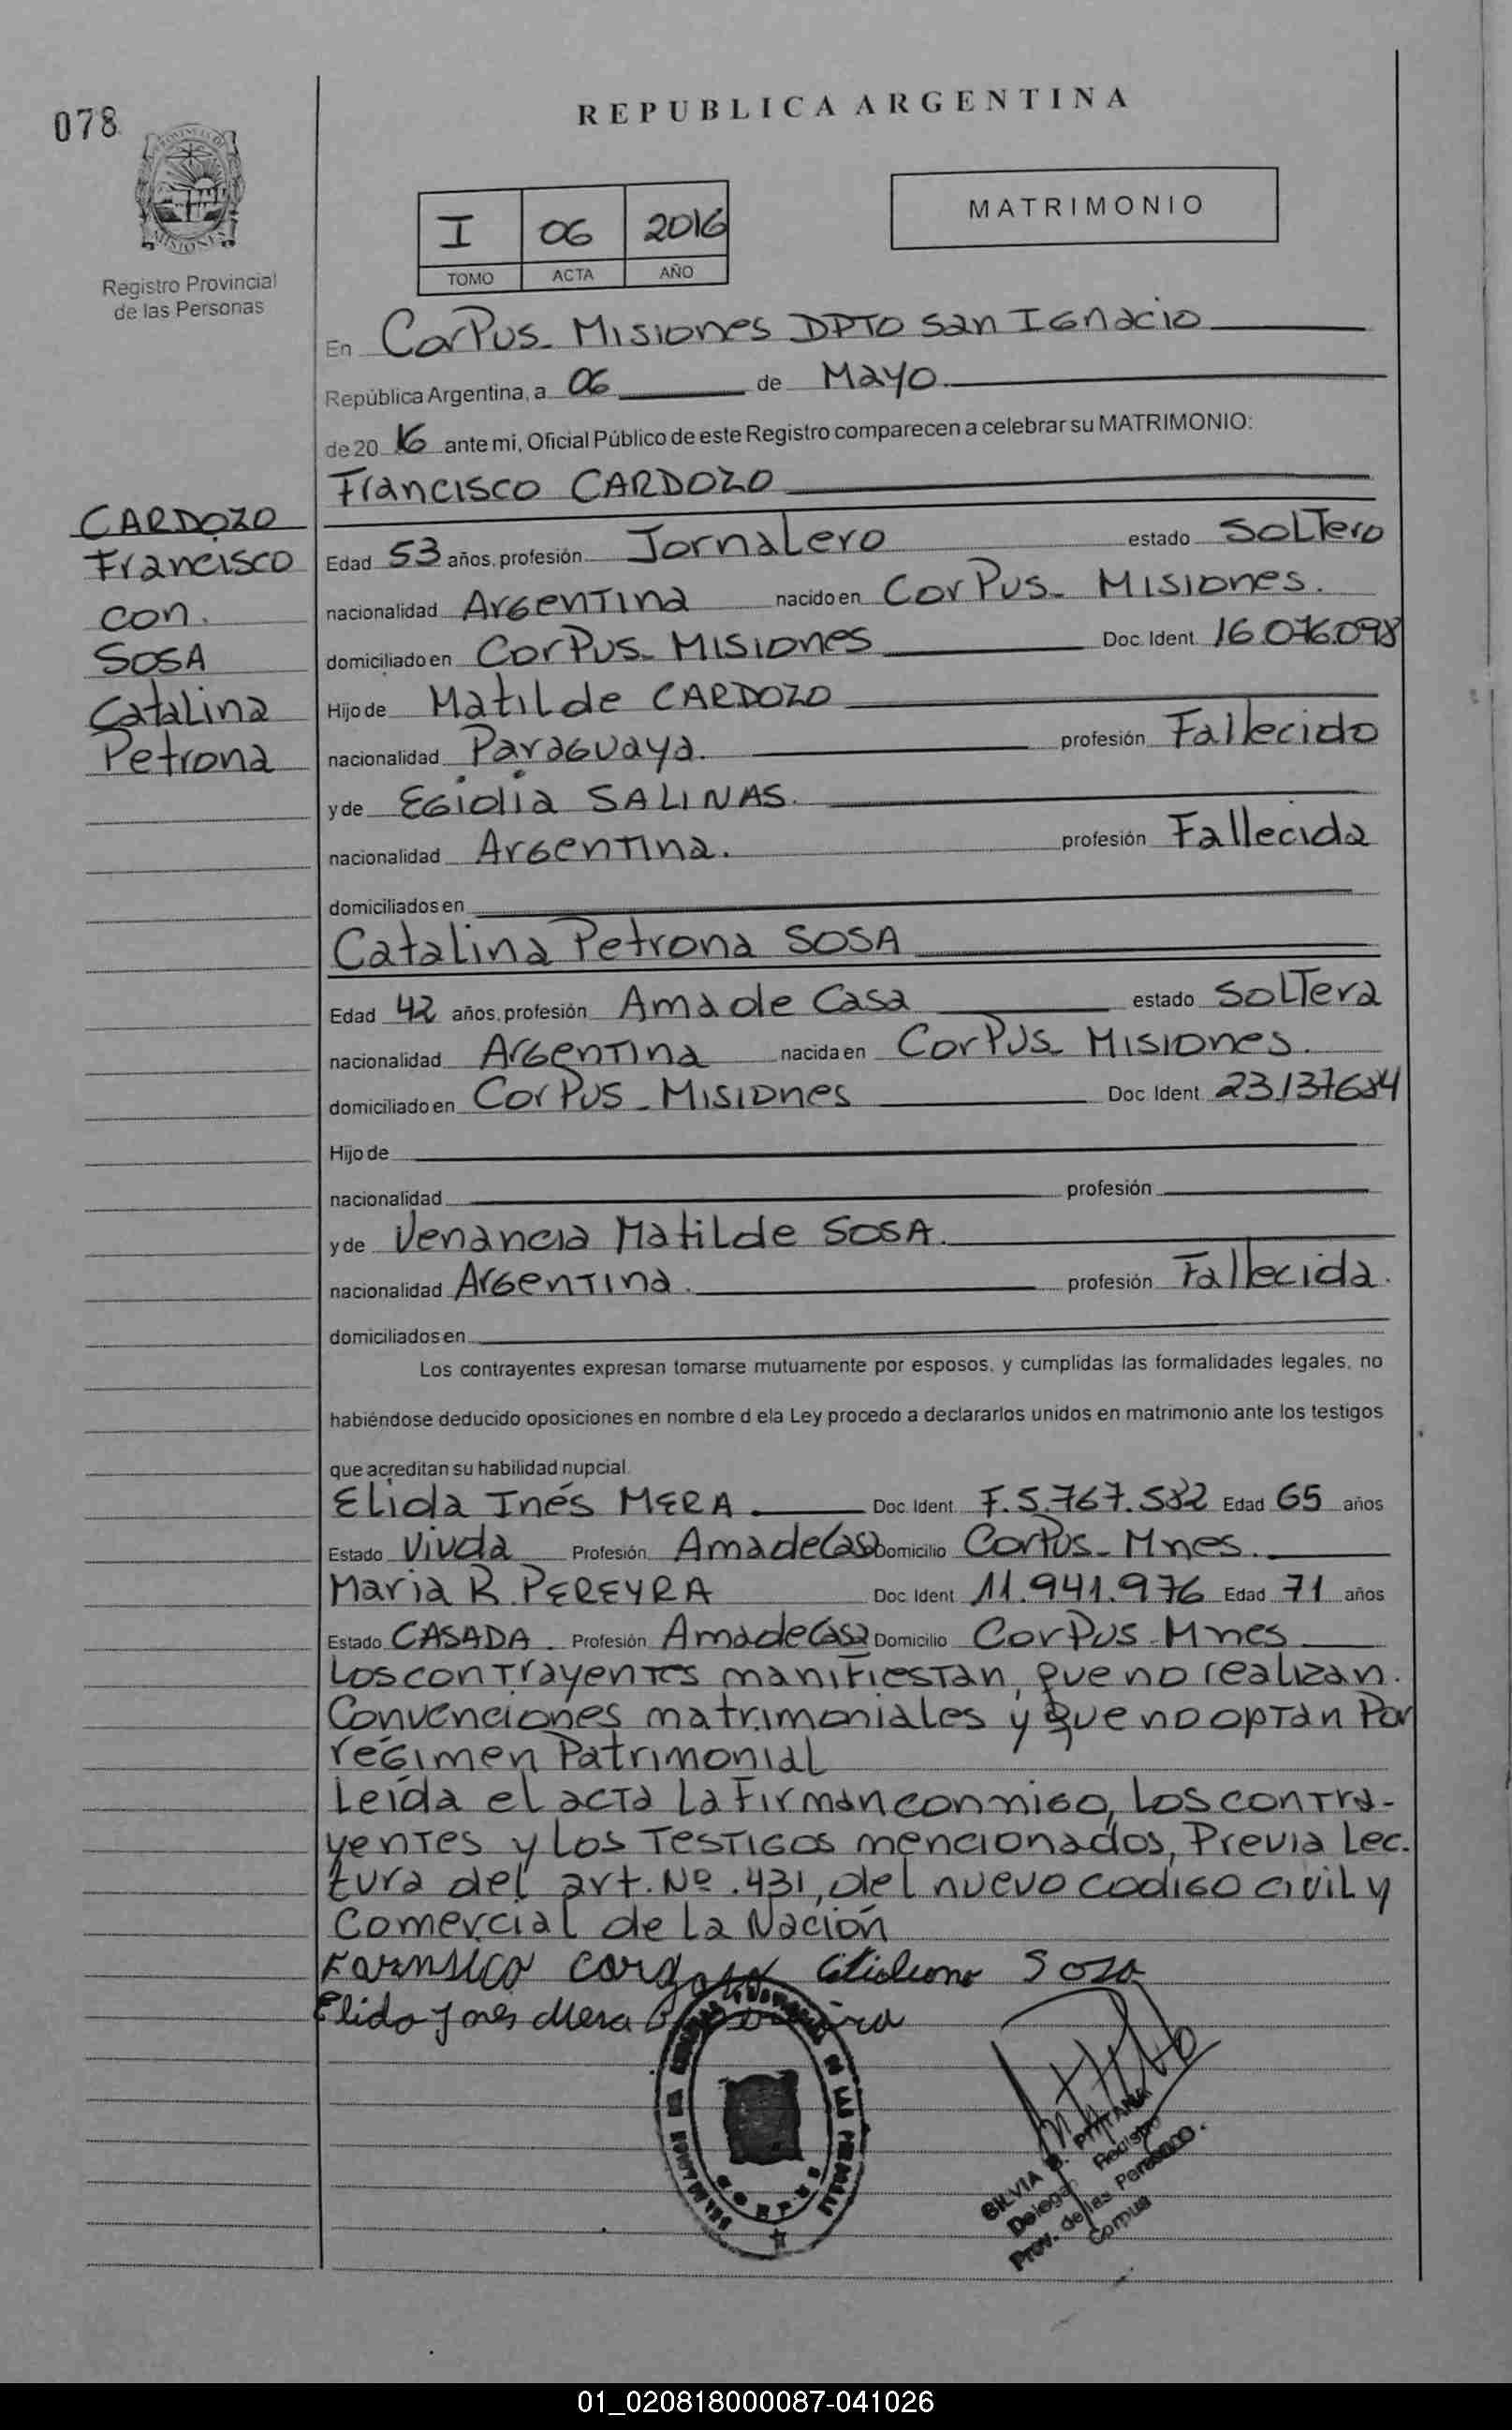 078
REPUBLICA ARGENTINA
PROVINCIA DE
MISIONES
Registro Provincial
de las Personas
I 06 2016
TOMO ACTA AÑO
MATRIMONIO
En Corpus - Misiones DPTO San Ignacio
República Argentina, a 06 de Mayo
de 20 16 ante mi, Oficial Público de este Registro comparecen a celebrar su MATRIMONIO:
Francisco CARDOZO
CARDOZO
Francisco
con.
SOSA
Catalina
Petrona
Edad 53 años, profesión Jornalero estado Soltero
nacionalidad Argentina nacido en Corpus - Misiones.
domiciliado en Corpus - Misiones Doc. Ident. 16.076.098
Hijo de Matilde CARDOZO
nacionalidad Paraguaya. profesión Fallecido
y de Egidia SALINAS.
nacionalidad Argentina. profesión Fallecida
domiciliados en
Catalina Petrona SOSA
Edad 42 años, profesión Ama de Casa estado Soltera
nacionalidad Argentina nacida en Corpus - Misiones.
domiciliado en Corpus - Misiones Doc. Ident.
Hijo de
nacionalidad profesión
y de Venancia Matilde SOSA.
nacionalidad Argentina. profesión Fallecida.
domiciliados en
Los contrayentes expresan tomarse mutuamente por esposos, y cumplidas las formalidades legales, no
habiéndose deducido oposiciones en nombre d ela Ley procedo a declararlos unidos en matrimonio ante los testigos
que acreditan su habilidad nupcial.
Elida Inés MERA Doc. Ident. F.5.767.582 Edad 65 años
Estado Viuda Profesión Ama de Casa Domicilio Corpus - Mnes.
Maria R. PEREYRA Doc. Ident. 11.941.976 Edad 71 años
Estado CASADA. Profesión Ama de Casa Domicilio Corpus - Mnes
Los contrayentes manifiestan, que no realizan.
Convenciones matrimoniales y que no optan Por
régimen Patrimonial
Leída el acta la firman conmigo, los contra-
yentes y los testigos mencionados, Previa Lec.
tura del art. Nº .431, del nuevo codigo civil y
Comercial de la Nación
Sosa
Elida Ines Mera
CORPUS
SILVIA PINTANA
Registro
Prov. de las Personas
Corpus
01_020818000087-041026